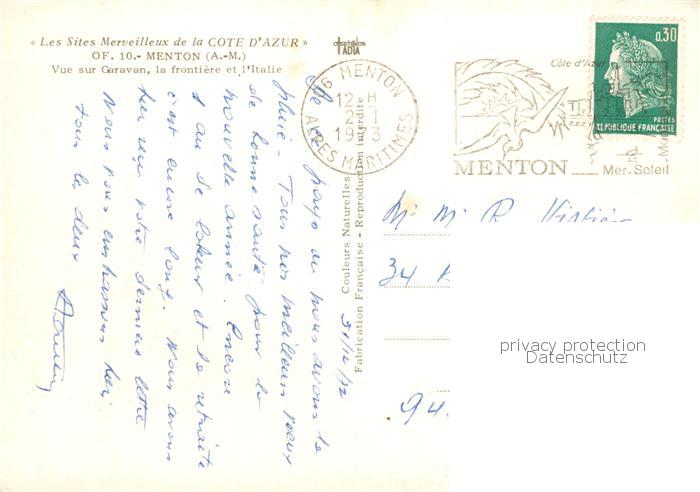 « Les Sites Merveilleux de la COTE D'AZUR »
OF. 10.- MENTON (A.-M.)
Vue sur Garavan, la frontière et l'Italie
06 MENTON
12 H
2-1
1973
ALPES MARITIMES
Côte d'Azur
MENTON
Mer. Soleil
0,30
POSTES
REPUBLIQUE FRANÇAISE
Couleurs Naturelles
Fabrication Française - Reproduction interdite
31/12/72
De ce pays où nous avons la
pluie - Tous nos meilleurs voeux
de bonne santé pour la
nouvelle année. Encore
1 an de labeur et la retraite
c'est encore long. Nous avons
bien reçu votre dernière lettre
Nous vous embrassons bien
tous les deux
M. M. R.
34
94
privacy protection
Datenschutz